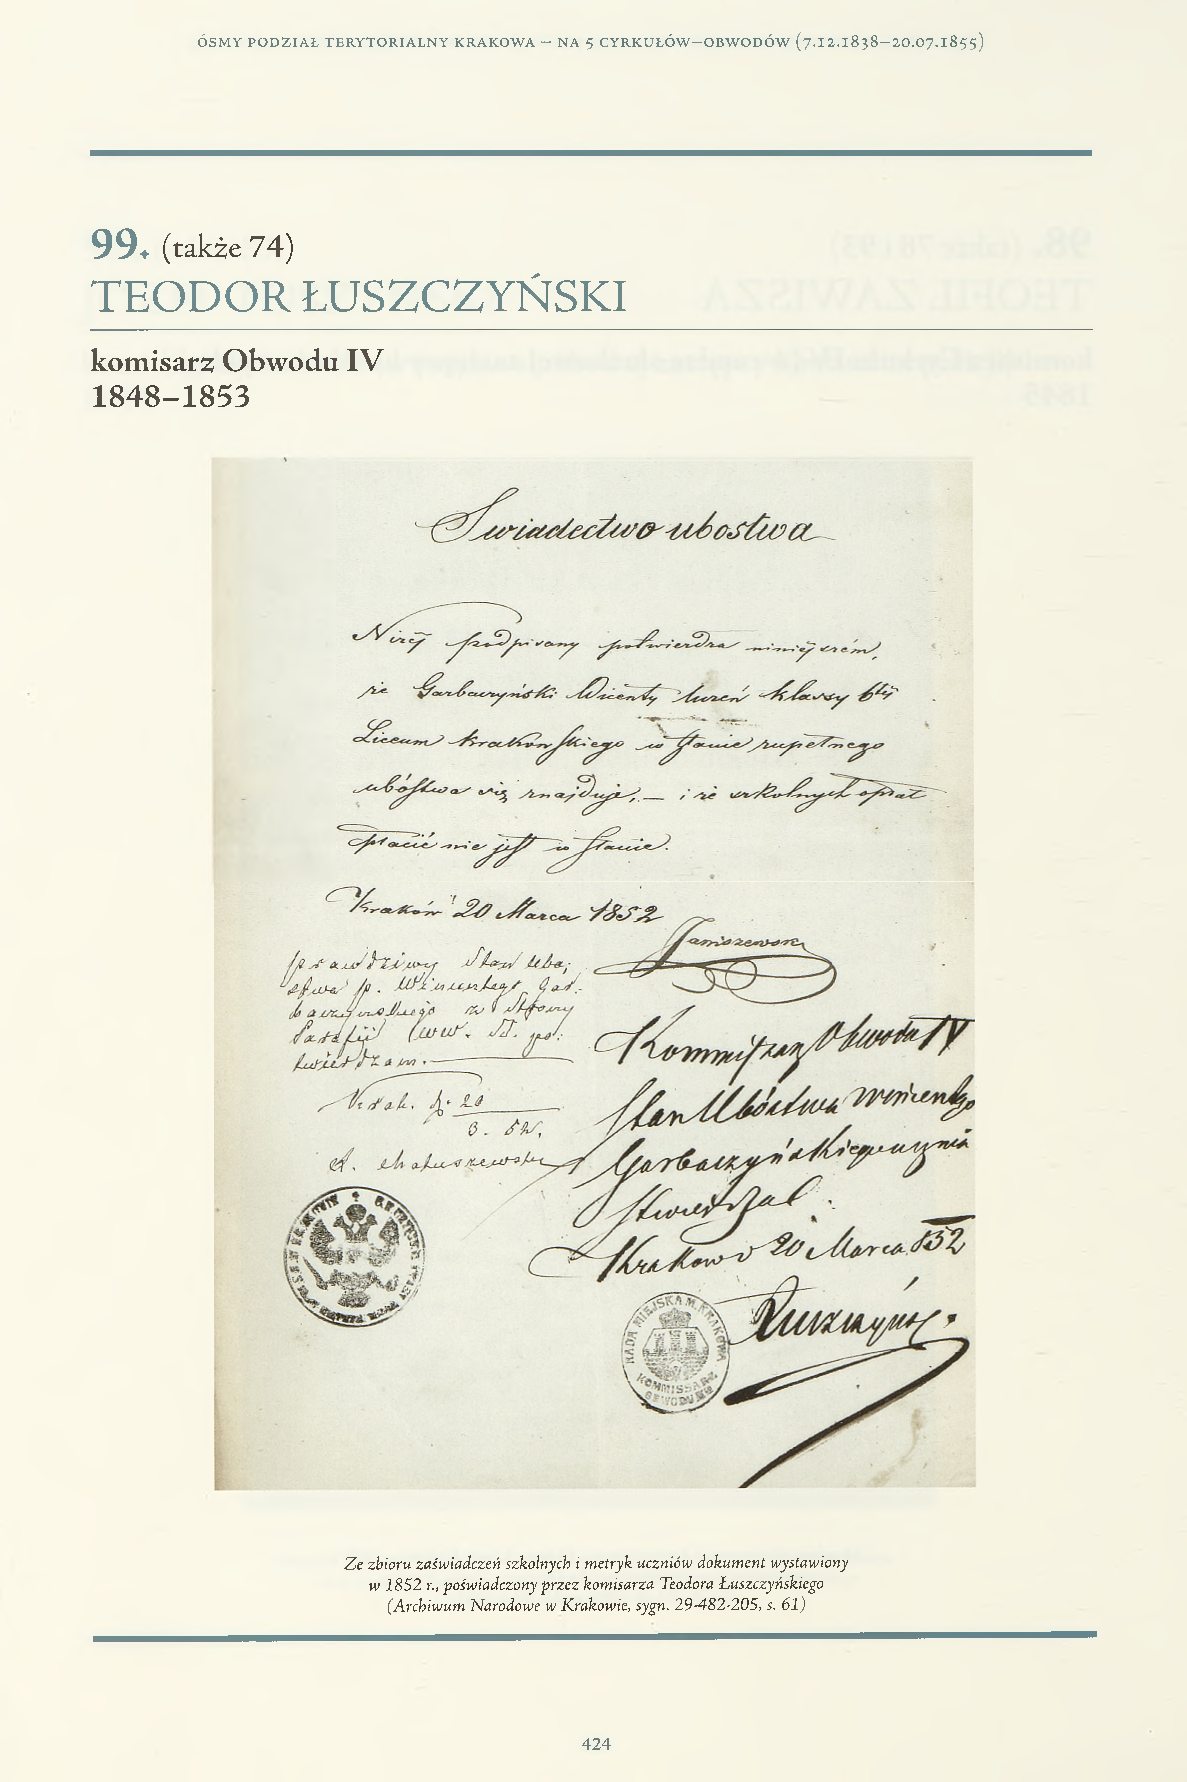 ÓSMY PODZIAŁ TERYTORIALNY KRAKOWA – NA 5 CYRKUŁÓW–OBWODÓW (7.12.1838–20.07.1855)
99. (także 74)
TEODOR ŁUSZCZYŃSKI
komisarz Obwodu IV
1848–1853
Swiadectwo ubostwa
Niżej podpisany potwierdza niniejszém,
że Garbaczyński Wicenty Uczeń klassy 6téj
Liceum Krakowskiego w stanie zupełnego
ubóstwa się znajduje, — i że szkolnych opłat
płacić nie jest w stanie.
Kraków 20 Marca 1852
Janiszewski
prawdziwy Stan Ubó,
stwa p. Wincentego Gar-
baczyńskiego z Strony
Parafij WW. SS. po:
twierdzam.
Krak. d. 20
3. 52.
A. Matuszewski
Kommissarz Obwodu IV
Stan Ubóstwa Wincentego
Garbaczyńskiego ucznia
Stwierdzał
Krakow d 20 Marca 852
Łuszczyńsk
RADA MIEJSKA M. KRAKOWA
KOMMISSARZ
OBWODU IV
Ze zbioru zaświadczeń szkolnych i metryk uczniów dokument wystawiony
w 1852 r., poświadczony przez komisarza Teodora Łuszczyńskiego
(Archiwum Narodowe w Krakowie, sygn. 29-482-205, s. 61)
424